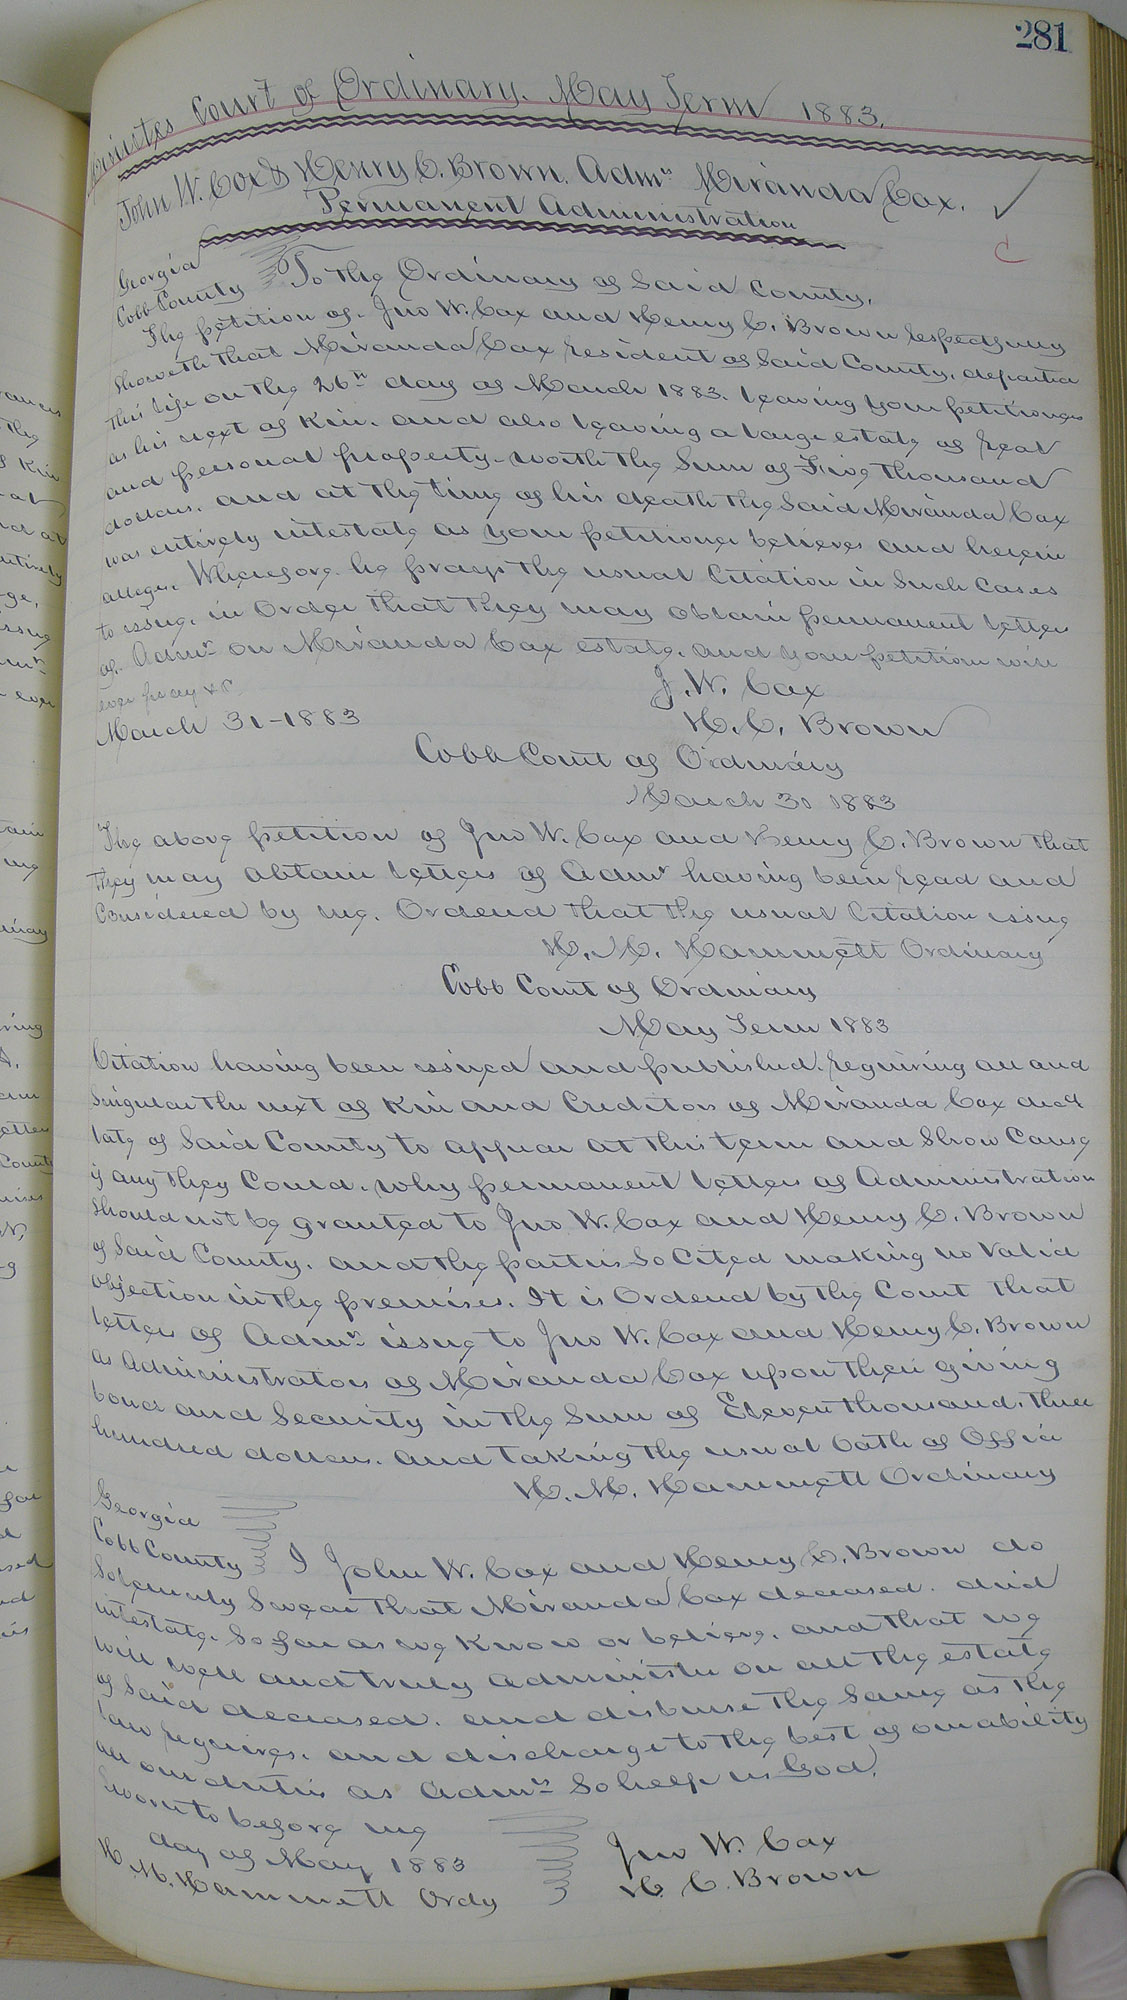 281
Minutes Court of Ordinary. May Term 1883.
John W. Cox & Henry C. Brown. Admrs Miranda Cox.
Permanent Administration
Georgia
Cobb County To the Ordinary of Said County.
The petition of. Jno W. Cox and Henry C. Brown respectfully
Showeth that Miranda Cox resident of Said County, departed
this life on the 26th day of March 1883. leaving your petitioners
as his next of Kin. and also leaving a large estate of real
and personal property. worth the Sum of Five thousand
dollars. and at the time of his death the Said Miranda Cox
was entirely intestate as your petitioner believes and herein
alleges. Wherefore he prays the usual Citation in Such Cases
to issue. in Order that they may obtain permanent letters
of. Admr on Miranda Cox estate. and your petition will
ever pray &c
J. W. Cox
March 31-1883
H. C. Brown
Cobb Court of Ordinary
March 31 1883
The above petition of Jno W. Cox and Henry C. Brown that
they may obtain letters of Admr having been read and
Considered by me. Orderd that the usual Citation issue
H. M. Hammett Ordinary
Cobb Court of Ordinary
May Term 1883
Citation having been issued and published. requiring all and
Singular the next of Kin and Creditors of Miranda Cox decd
late of Said County to appear at this term and Show Cause
if any they Could. why permanent letters of Administration
Should not be granted to Jno W. Cox and Henry C. Brown
of Said County. and the parties So Cited making no Valid
objection in the premises. It is Orderd by the Court that
letters of Admrs issue to Jno W. Cox and Henry C. Brown
as Administrators of Miranda Cox upon their giving
bond and Security in the Sum of Eleven thousand. three
hundred dollars. and taking the usual Oath of Office
H. M. Hammett Ordinary
Georgia
Cobb County I John W. Cox and Henry C. Brown do
Solemnly Swear that Miranda Cox deceased. died
intestate. So far as we Know or believe. and that we
will well and truly Administer on all the estate
of Said deceased. and disburse the Same as the
law requires. and discharge to the best of our ability
all our duties as Admrs So help us God.
Sworn to before me
day of May 1883
Jno W. Cox
H. M. Hammett Ordy
H. C. Brown